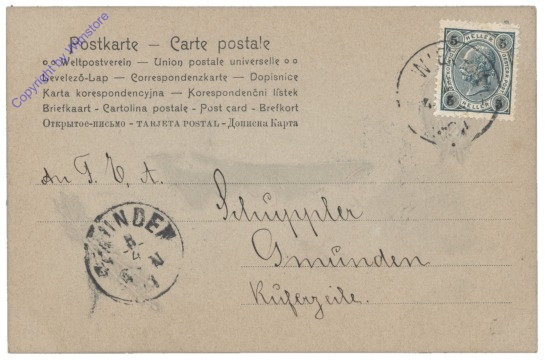 Copyright by Wienstore
Postkarte — Carte postale
Weltpostverein — Union postale universelle
Levelező-Lap — Correspondenzkarte — Dopisnice
Karta korespondencyjna — Korespondenční lístek
Briefkaart - Cartolina postale - Post card - Brefkort
Открытое-письмо - TARJETA POSTAL - Дописна Карта
5 5
HELLER
5 HELLER 5
WIEN
An F. E. A.
Schuppler
GMUNDEN
Gmunden
Kuferzeile.